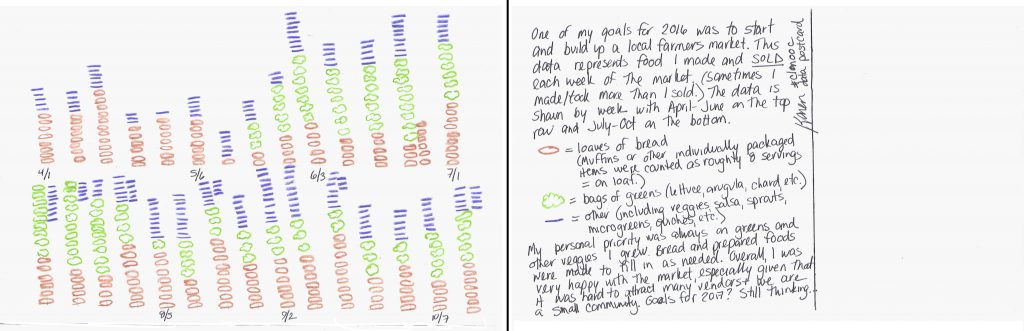 4/1
5/6
6/3
7/1
8/5
9/2
10/7
One of my goals for 2016 was to start
and build up a local farmers market. This
data represents food I made and SOLD
each week of the market. (Sometimes I
made/took more than I sold.) The data is
shown by week with April-June on the top
row and July-Oct on the bottom.
= loaves of bread
(Muffins or other individually packaged
items were counted as roughly 8 servings
= on loaf.)
= bags of greens (lettuce, arugula, chard, etc.)
= other (including veggies, salsa, sprouts,
microgreens, quiches, etc.)
My personal priority was always on greens and
other veggies I grew. Bread and prepared foods
were made to fill in as needed. Overall, I was
very happy with the market especially given that
it was hard to attract many vendors + we are
a small community. Goals for 2017? Still thinking...
#clmooc
data postcard